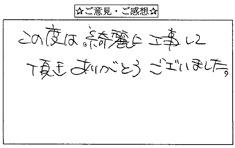 ☆ご意見・ご感想☆
この度は、綺麗に工事して
頂きありがとうございました。